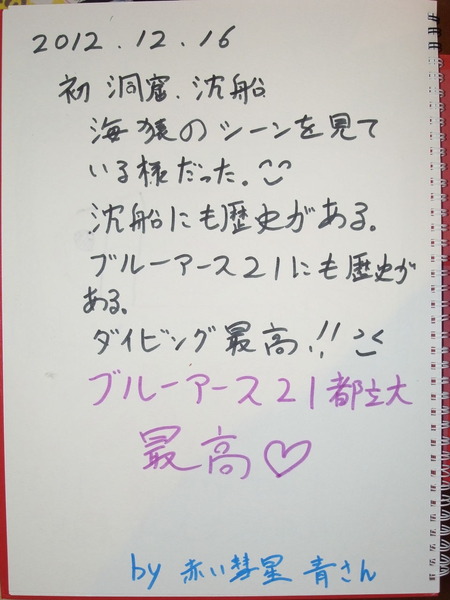 2012.12.16
初 洞窟、沈船
海猿のシーンを見て
いる様だった。
沈船にも歴史がある。
ブルーアース21にも歴史が
ある。
ダイビング最高!!
ブルーアース21都立大
最高♡
by 赤い彗星 青さん